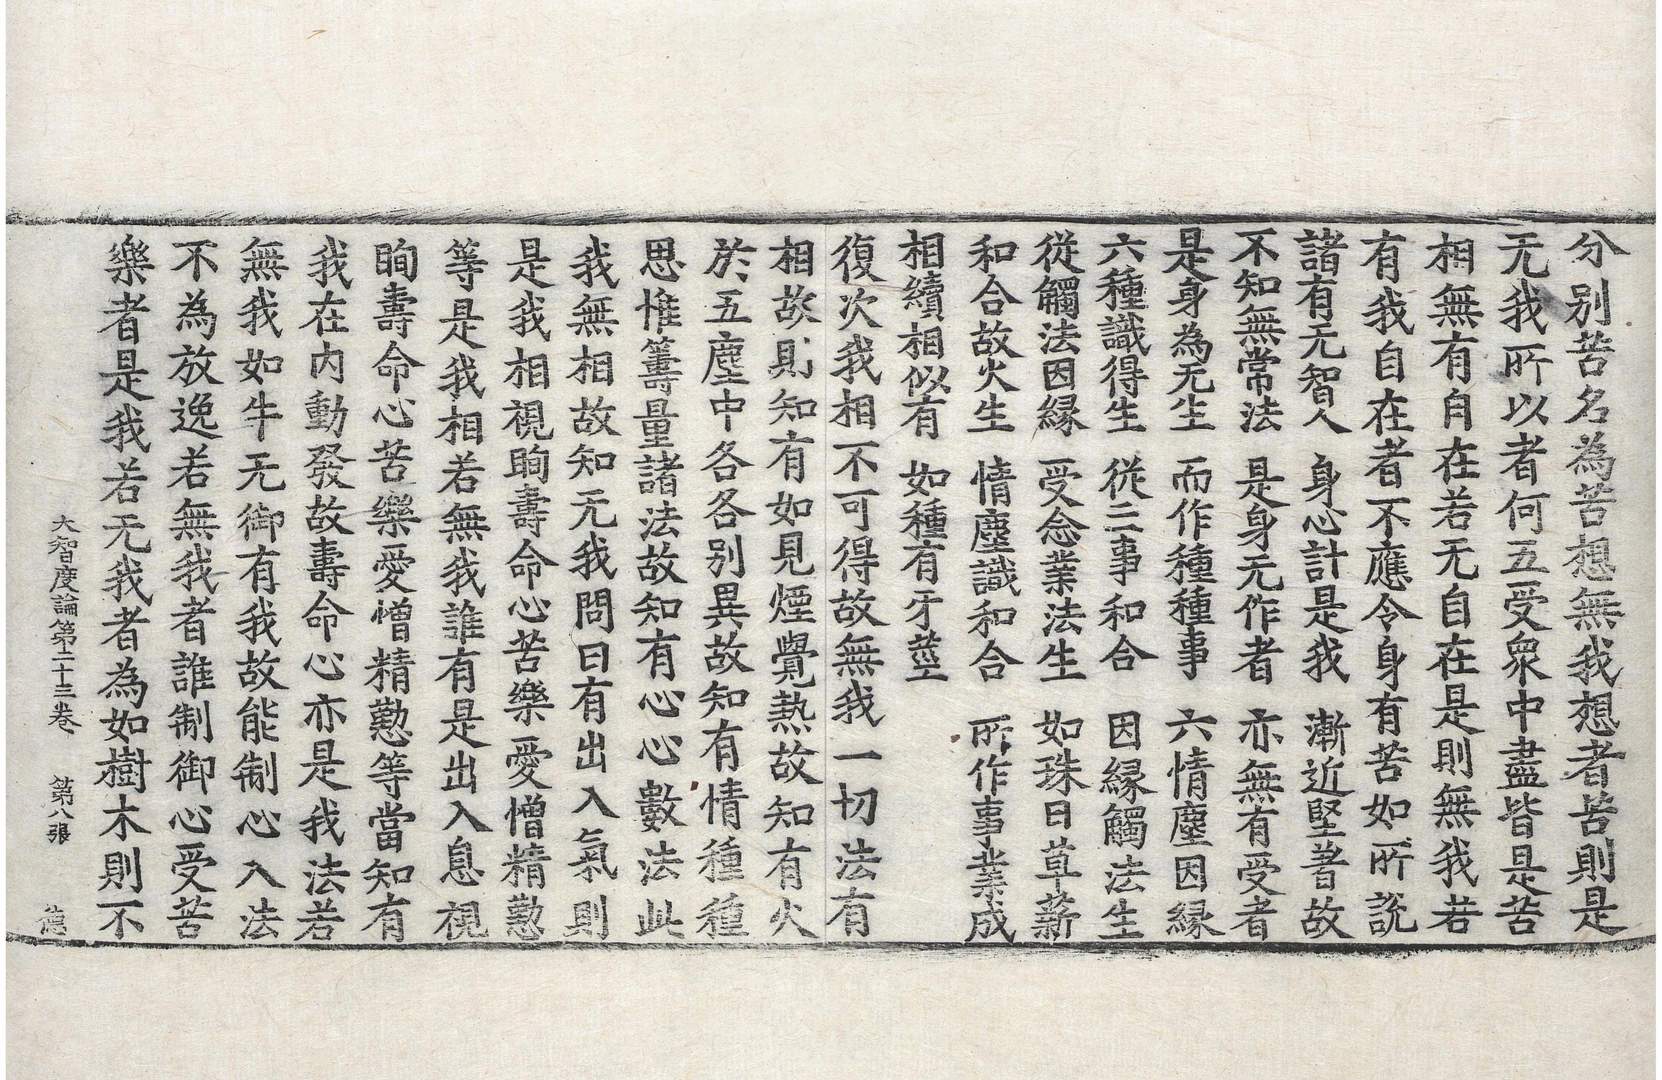 分別苦名為苦想無我想者苦則是
无我所以者何五受衆中盡皆是苦
相無有自在若无自在是則無我若
有我自在者不應令身有苦如所說
諸有无智人　身心計是我　漸近堅著故
不知無常法　是身无作者　亦無有受者
是身為无生　而作種種事　六情塵因縁
六種識得生　從三事和合　因縁觸法生
從觸法因縁　受念業法生　如珠日草薪
和合故火生　情塵識和合　所作事業成
相續相似有　如種有牙莖
復次我相不可得故無我一切法有
相故則知有如見煙覺熱故知有火
於五塵中各各別異故知有情種種
思惟籌量諸法故知有心心數法此
我無相故知无我問曰有出入氣則
是我相視眴壽命心苦樂愛憎精懃
等是我相若無我誰有是出入息視
眴壽命心苦樂愛憎精懃等當知有
我在内動發故壽命心亦是我法若
無我如牛无御有我故能制心入法
不為放逸若無我者誰制御心受苦
樂者是我若无我者為如樹木則不
大智度論第二十三卷　第八張　德